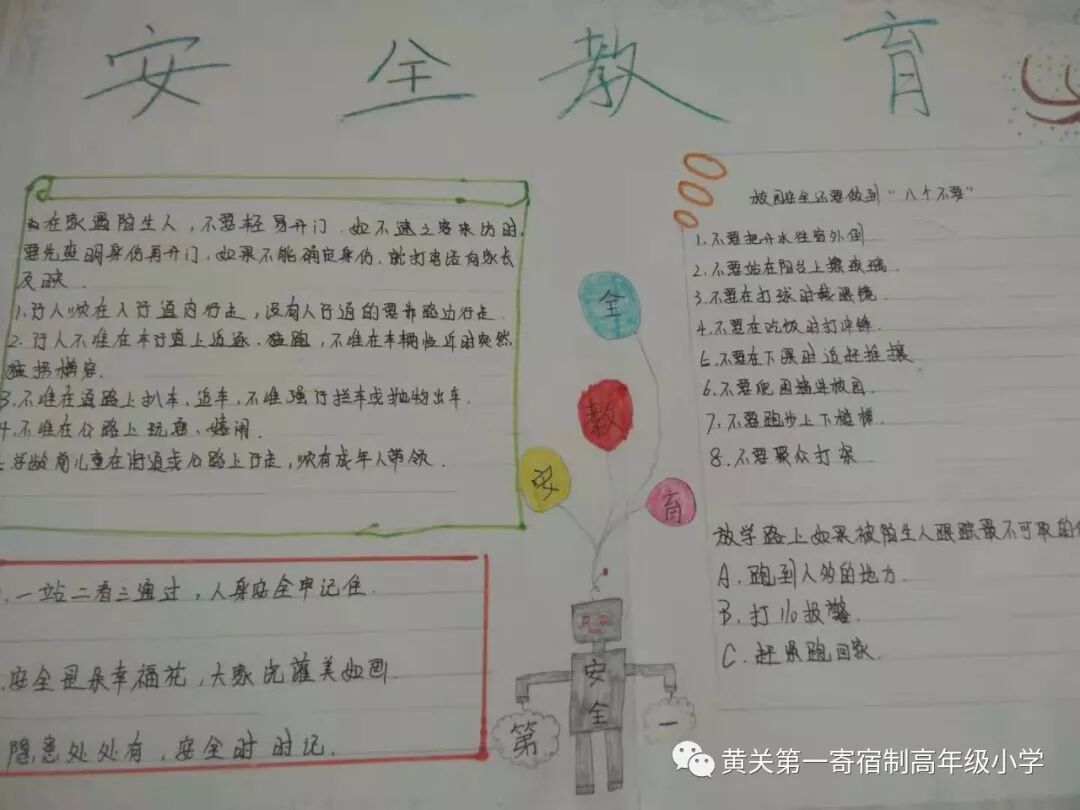 安全教育
在家遇陌生人，不要轻易开门．如不速之客来访时，
要先查明身份再开门，如果不能确定身份，就打电话向家长
反映．
1.行人必须在人行道内行走，没有人行道的要靠路边行走．
2.行人不准在车行道上追逐．猛跑，不准在车辆临近时突然
猛拐横穿．
3.不准在道路上扒车、追车，不准强行拦车或抛物击车．
4.不准在公路上玩耍、嬉闹．
学龄前儿童在街道或公路上行走，须有成年人带领．
一站二看三通过，人身安全牢记住．
安全是朵幸福花，大家浇灌美如画
隐患处处有，安全时时记．
全
教
安
育
安
全
第
一
校园安全还要做到“八个不要”
1.不要把开水往窗外倒
2.不要站在阳台上擦玻璃．
3.不要在打球时戴眼镜
4.不要在吃饭时打冲锋．
5.不要在下课时追赶推攘
6.不要爬围墙进校园．
7.不要跑步上下楼梯
8.不要聚众打架
放学路上如果被陌生人跟踪最不可取的
A.跑到人多的地方．
B.打110报警．
C.赶紧跑回家．
黄关第一寄宿制高年级小学